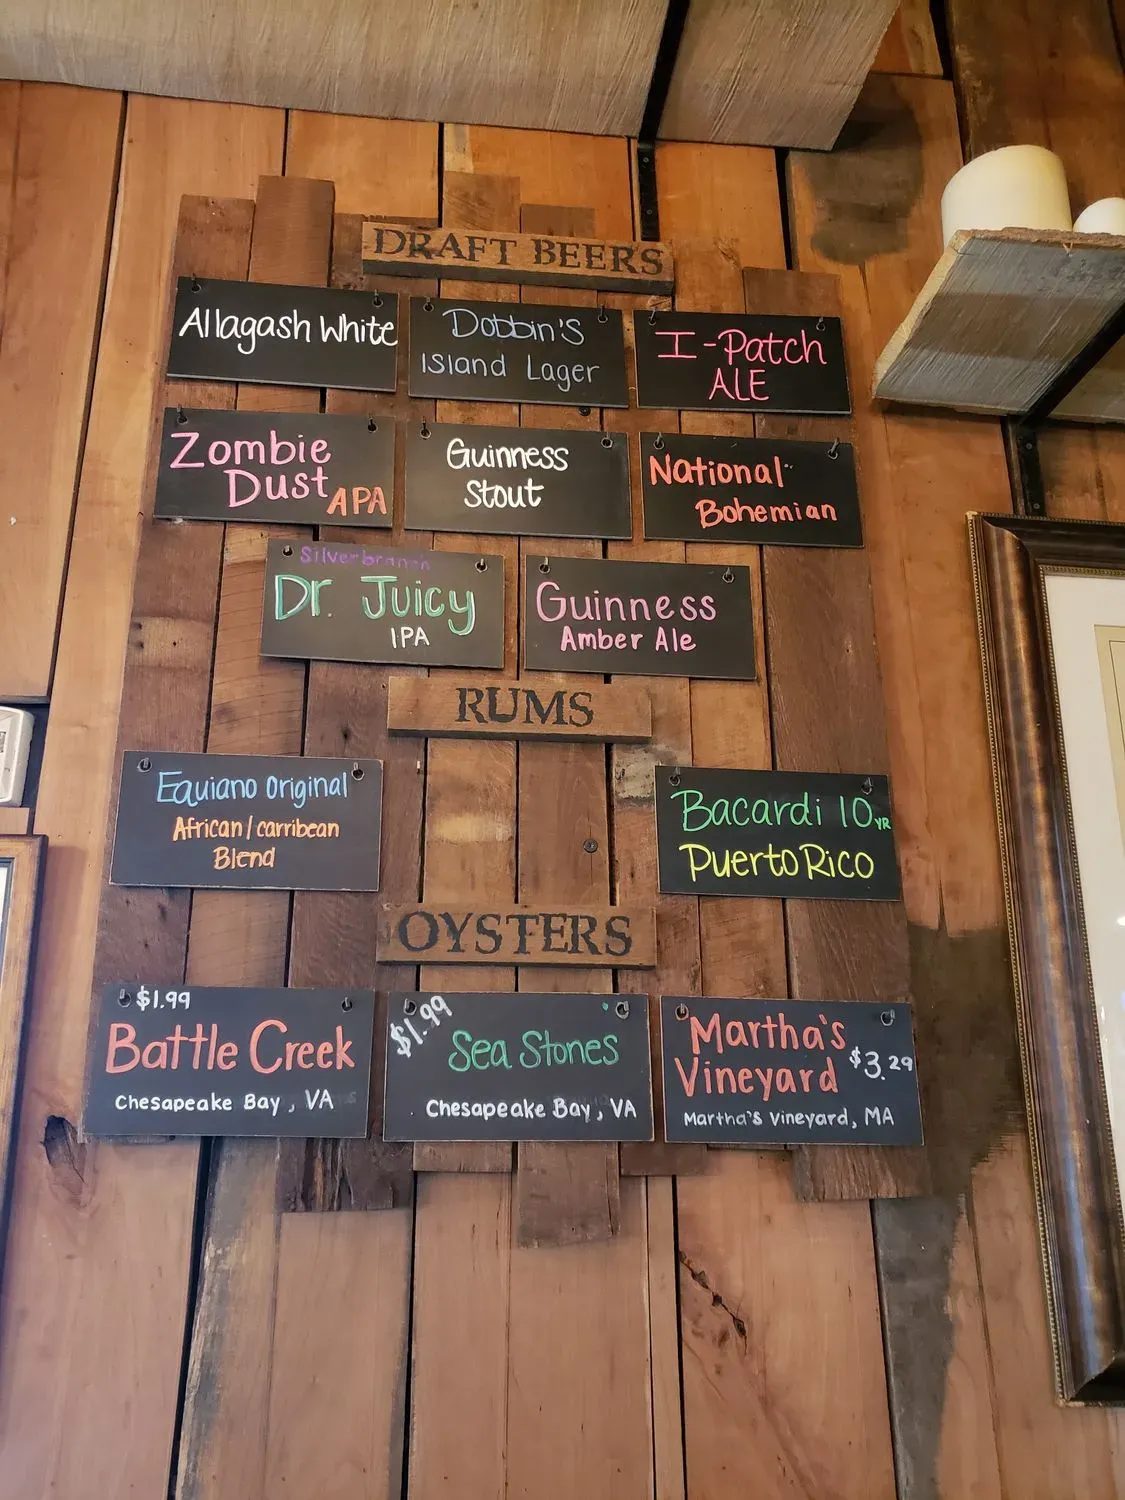 DRAFT BEERS
Allagash White
Dobbin's
Island Lager
I-Patch
ALE
Zombie
Dust APA
Guinness
Stout
National
Bohemian
Silverbranch
Dr. Juicy
IPA
Guinness
Amber Ale
RUMS
Equiano Original
African/carribean
Blend
Bacardi 10 YR
Puerto Rico
OYSTERS
$1.99
Battle Creek
Chesapeake Bay, VA
$1.99
Sea Stones
Chesapeake Bay, VA
Martha's
Vineyard $3.29
Martha's Vineyard, MA